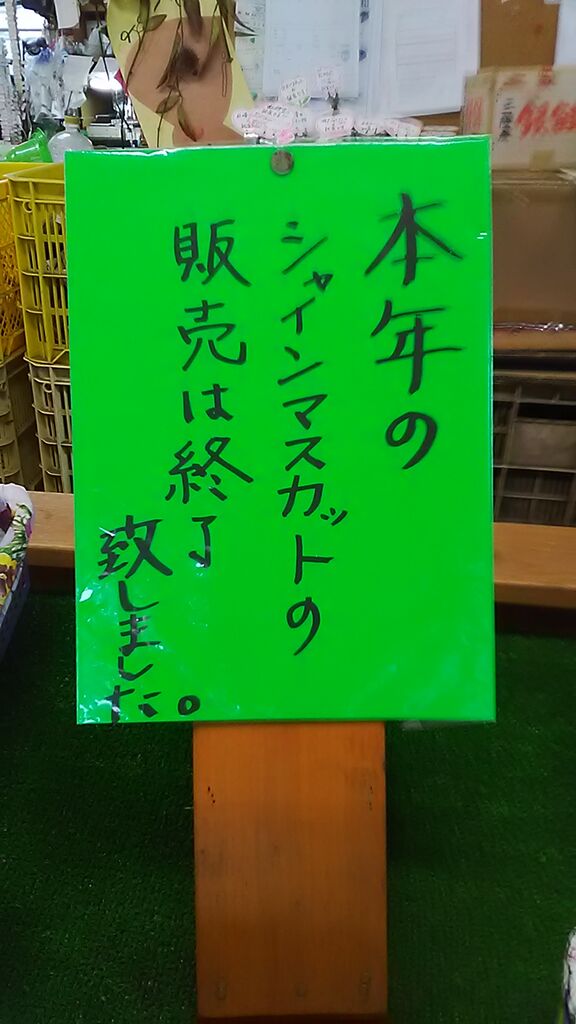 本年の
シャインマスカットの
販売は終了
致しました。